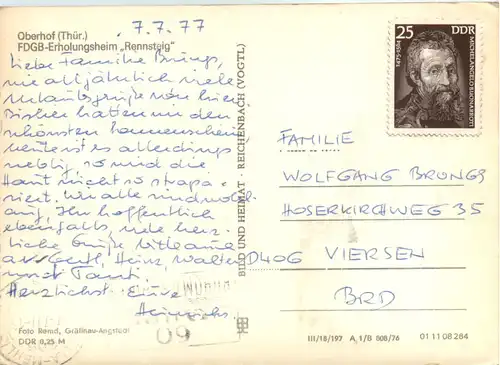 Oberhof (Thür.)
FDGB-Erholungsheim „Rennsteig"
7.7.77
Liebe Familie Brungs,
wie alljährlich viele
Urlaubsgrüße von hier.
Bisher hatten wir den
schönsten Sonnenschein,
heute ist es allerdings
neblig, so wird die
Haut nicht so strapa-
ziert. Wir alle sind wohl
auf, Ihr hoffentlich
ebenfalls, viele herz-
liche Grüße bitte auch
an Gertl, Heinz, Walter
und Tanti.
Herzlichst Eure
Heinrichs.
Foto Remd, Gräfinau-Angstedt
DDR 0,25 M
BILD UND HEIMAT · REICHENBACH (VOGTL)
25 DDR
1475-1564
MICHELANGELO BUONARROTI
FAMILIE
WOLFGANG BRUNGS
HOSERKIRCHWEG 35
D406 VIERSEN
BRD
III/18/197 A 1/B 808/76
01 11 08 284